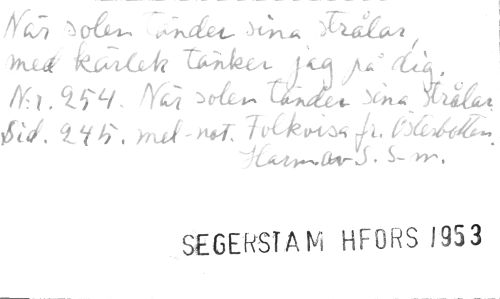 När solen tänder sina strålar,
med kärlek tänker jag på dig.
Nr. 254. När solen tänder sina strålar.
Sid. 245. mel-not. Folkvisa fr. Österbotten.
Harm. av S. S-m.
SEGERSTAM HFORS 1953